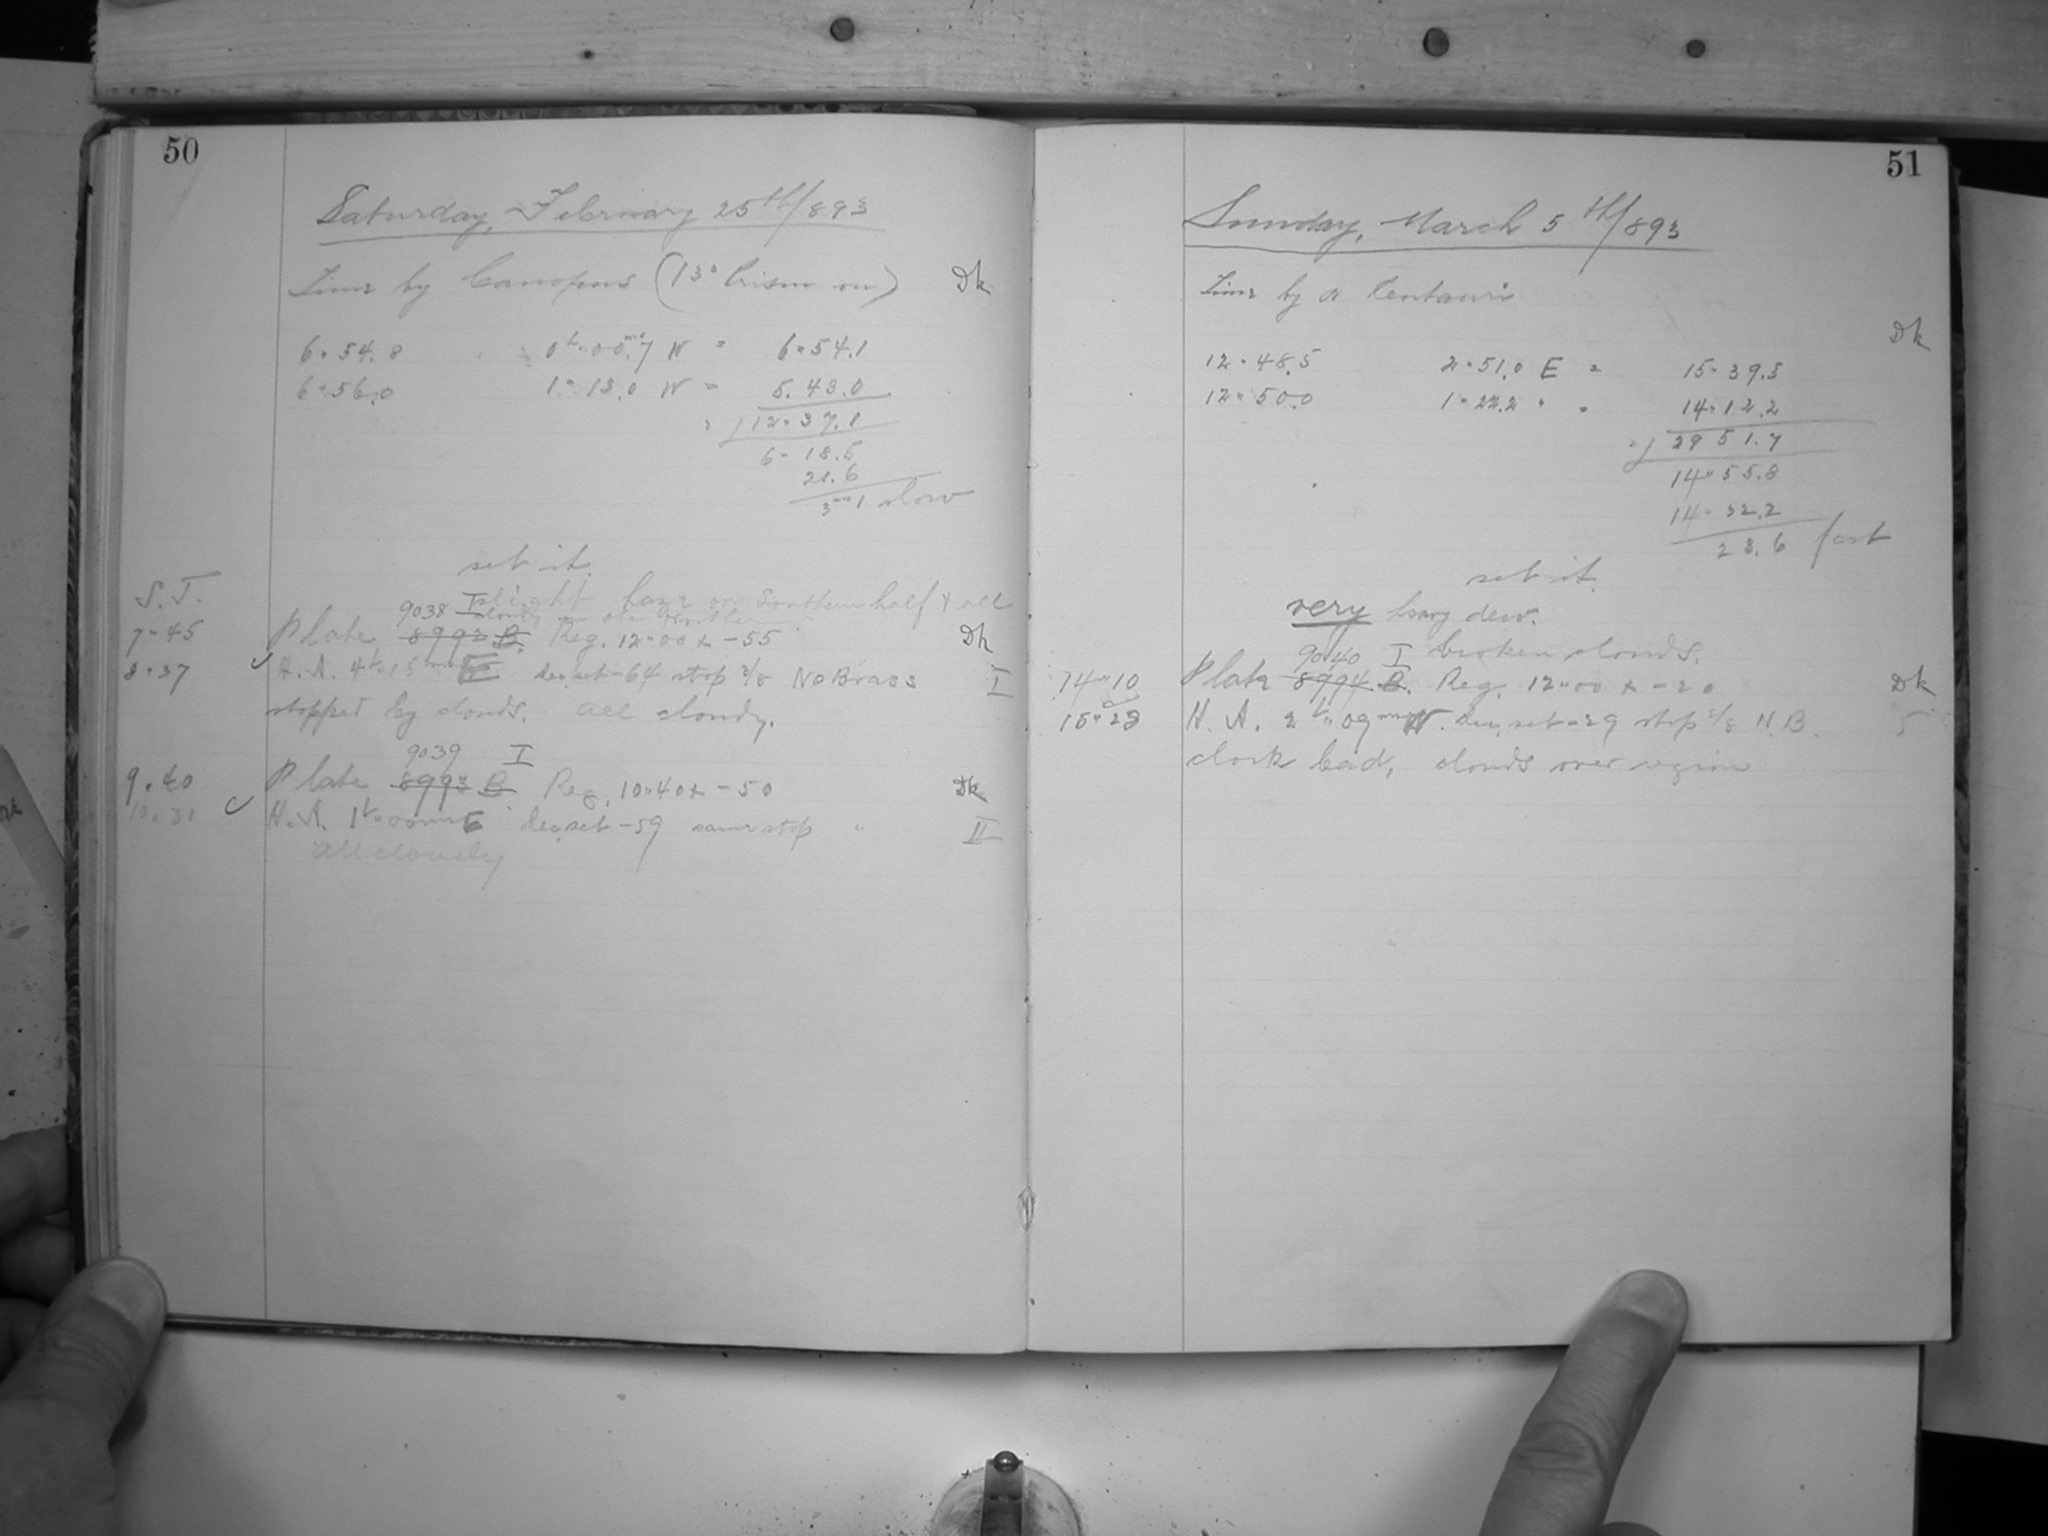 50
Saturday, February 25th/893
Time by Canopus (13° Prism on) Dk
6"54.8 0h"00.m7 W = 6"54.1
6"56.0 1"13.0 W = 5.43.0
12"37.1
6"18.5
21.6
3m1 slow
set it.
S.T.
9038 I slight haze on Southern half & all
cloudy on the Northern
7"45 Plate 8992 B. Reg. 12"00 x -55 Dk
8"37 H.A. 4h"15m E Dec, set -64 stop 2/8 No Brass I
stopped by clouds. all cloudy.
9039 I
9.40 Plate 8993 B. Reg. 10"40 x -50 Dk
10.30 H.A. 1h"00m E Dec, set -59 same stop " II
all cloudy
51
Sunday, March 5th/893
Time by α Centauri
Dk
12"48.5 2"51.0 E = 15"39.5
12"50.0 1"22.2 " = 14"12.2
29 51.7
14"55.8
14"32.2
23.6 fast
set it.
very heavy dew.
9040 I broken clouds.
14"10 Plate 8994 B. Reg. 12"00 x -20 Dk
15"23 H.A. 2h"09m W. Dec, set -29 stop 2/8 N.B. 5
clock bad, clouds over region